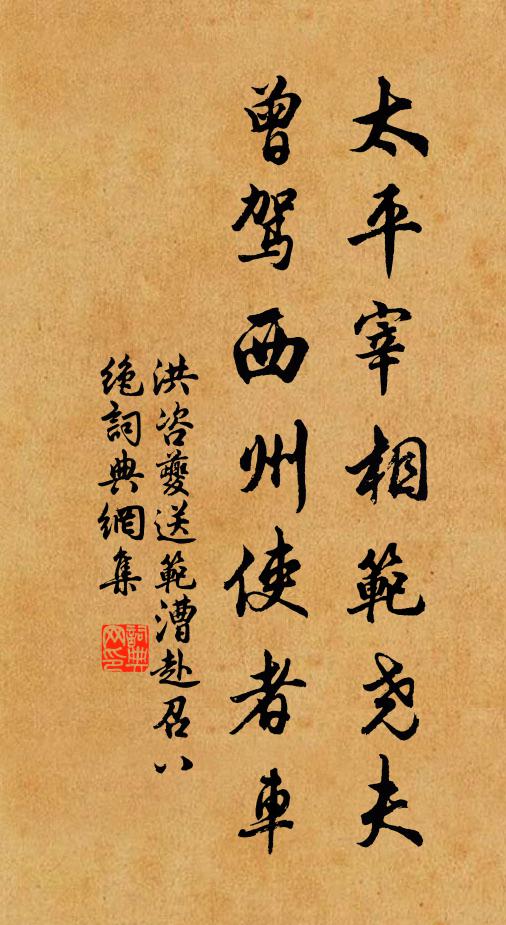 太平宰相範尧夫
曾駕西州使者車
洪咨夔送範漕赴召八
絶詞典網集
詞典网印